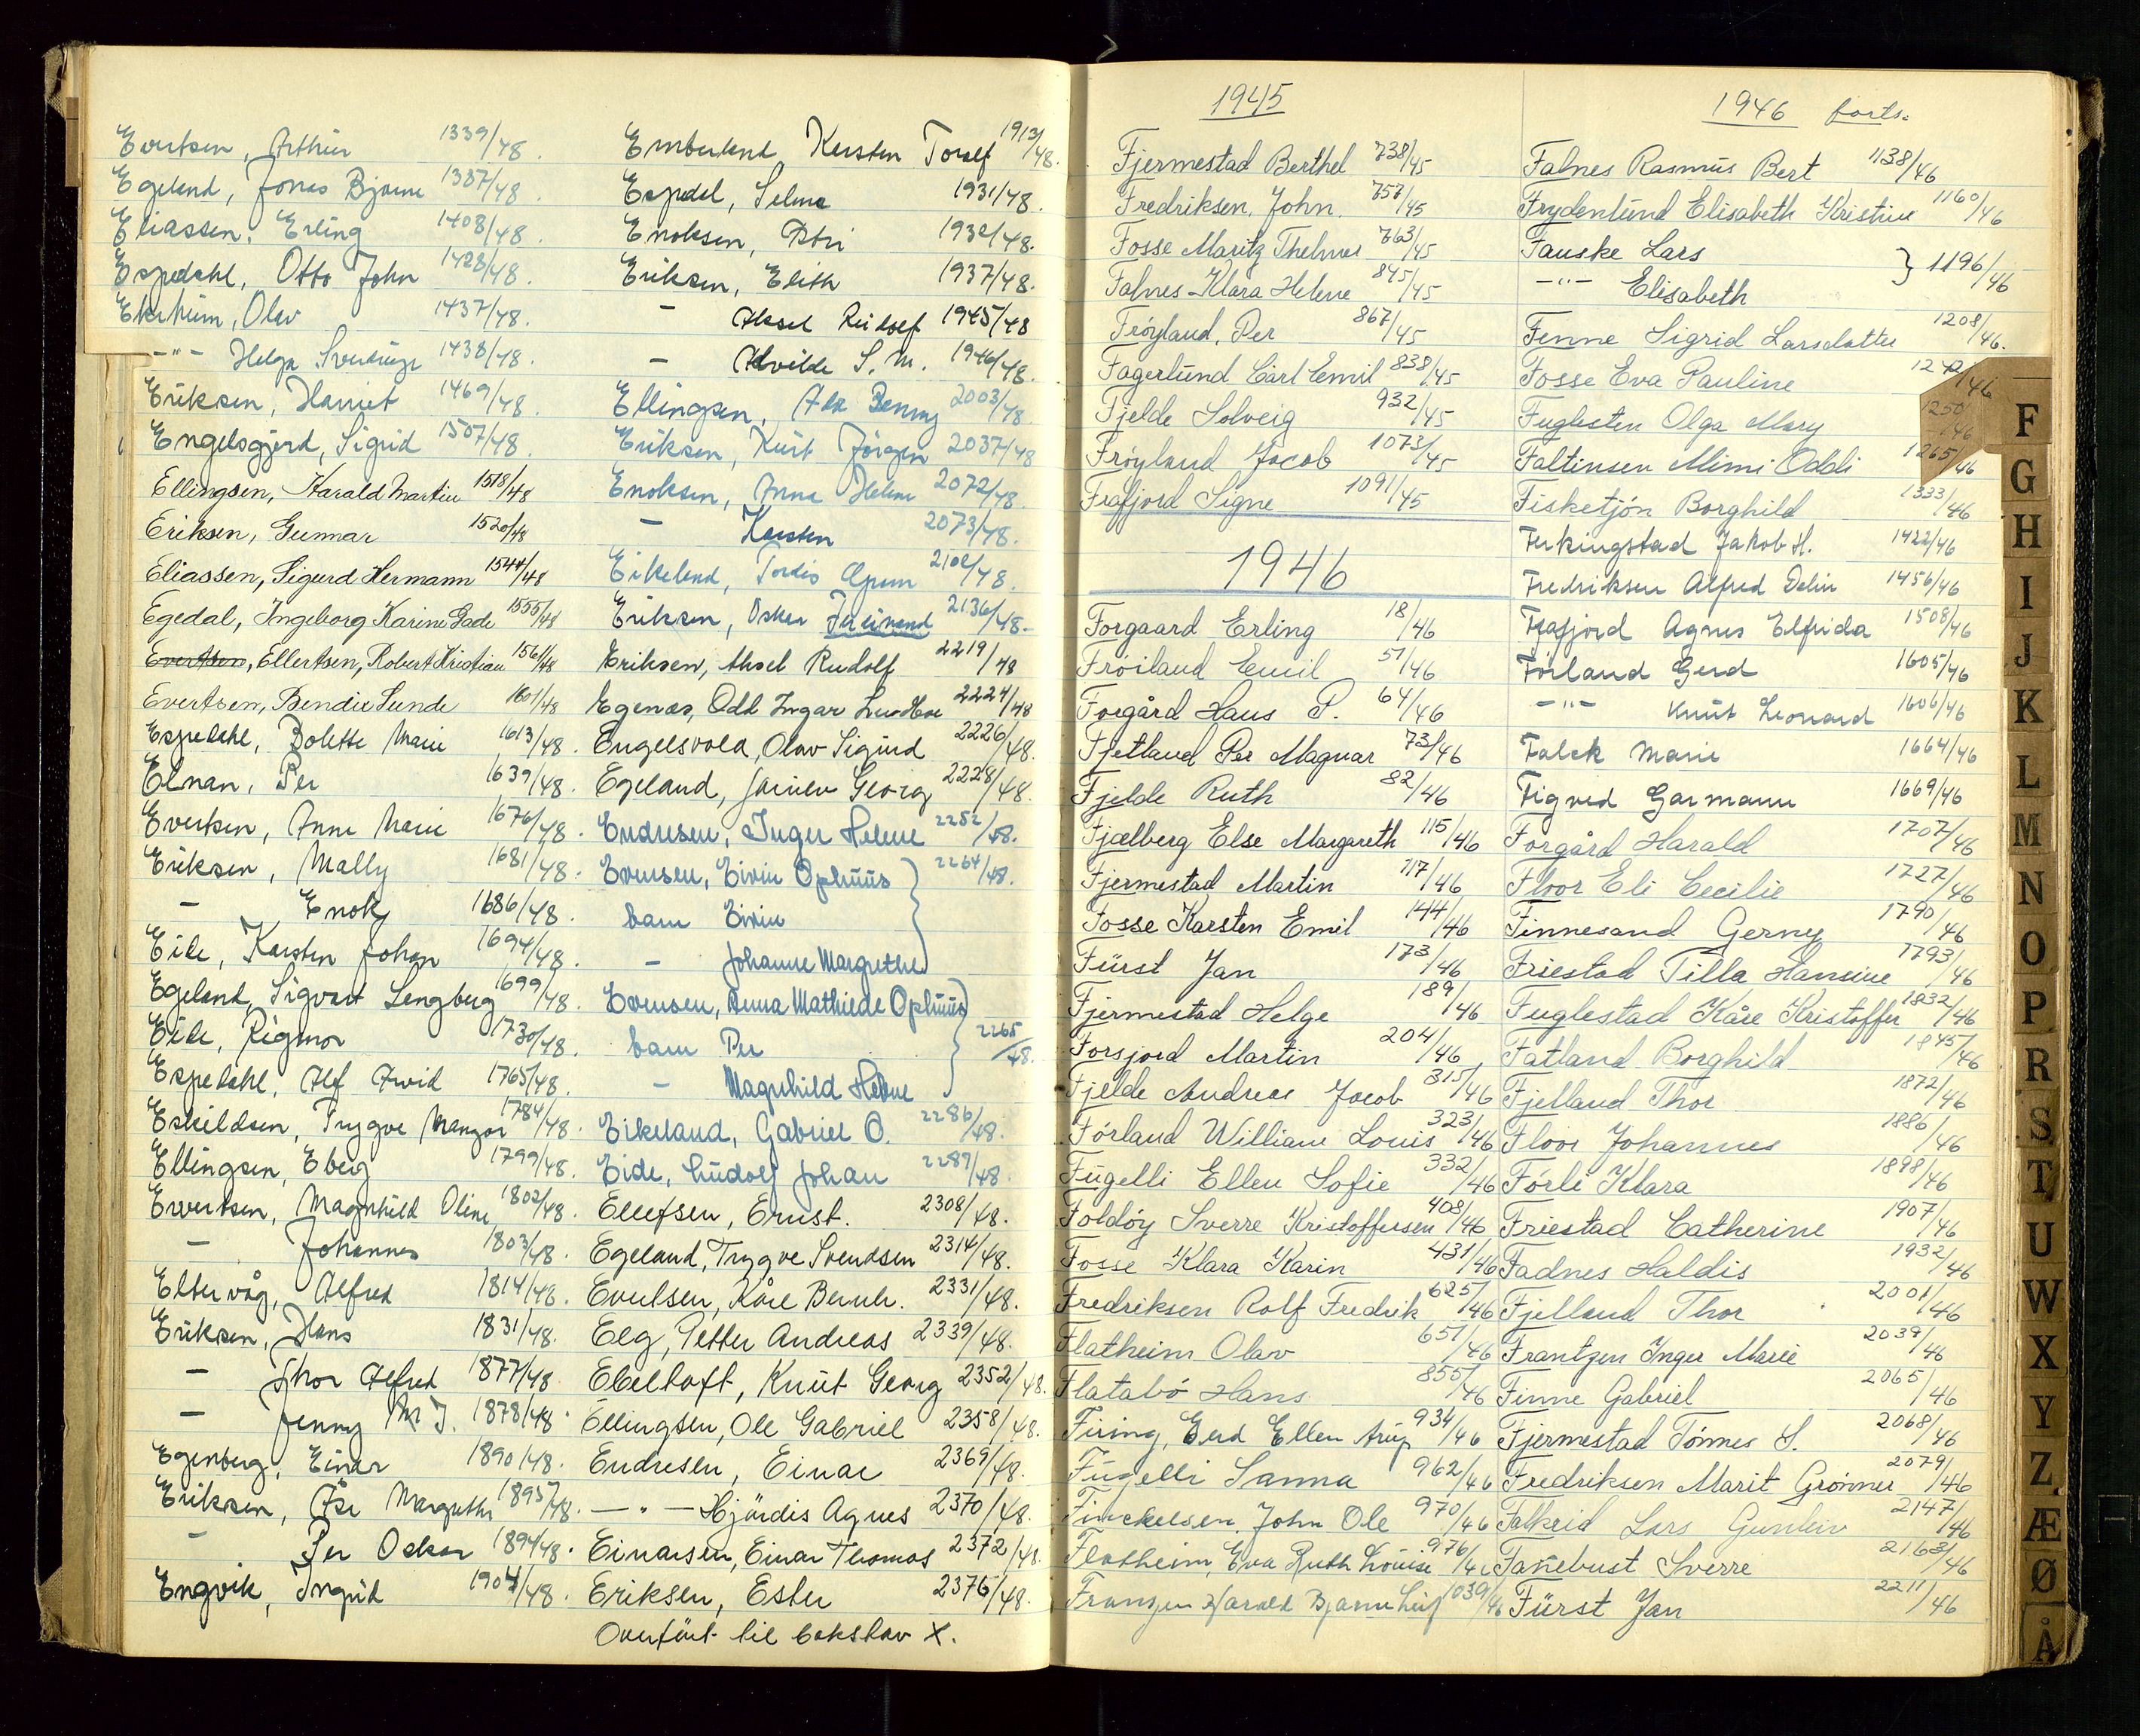 Evertsen, Arthur 1339/48.
Egeland, Jonas Bjarne 1387/48.
Eliassen, Erling 1408/48.
Espedahl, Otto John 1428/48.
Olav 1437/48.
-"- Helga 1438/48.
Eriksen, Harriet 1469/48.
Engelsgjerd, Sigrid 1507/48.
Ellingsen, Harald Martin 1518/48
Eriksen, Gunnar 1520/48
Eliassen, Sigurd Hermann 1544/48
Egedal, Ingeborg Karine Gade 1555/48
Evertsen, Ellertsen, Robert Kristian 1561/48
Evertsen, Bendix Sunde 1601/48
Espedahl, Bolette Marie 1613/48.
Elnan, Per 1639/48.
Evertsen, Anne Marie 1676/48.
Eriksen, Mally 1681/48.
- Enok 1686/48.
Eide, Karsten Johan 1694/48.
Egeland, Sigvart Lengberg 1699/48.
Eide, Rigmor 1730/48.
Espedahl, Alf Arvid 1765/48.
Eskildsen, Trygve Mangor 1784/48.
Ellingsen, Eberg 1799/48.
Evertsen, Magnhild Oline 1802/48.
- Johannes 1803/48.
Eltervåg, Alfred 1814/48.
Eriksen, Hans 1831/48.
- Thor Alfred 1877/48
- Jenny M J. 1878/48.
Egenberg, Einar 1890/48.
Eriksen, Åse Margrethe 1893/48.
- Per Oskar 1894/48.
Engvik, Ingrid 1904/48.
Emberland Karsten Torolf 1913/48.
Espedal, Selma 1931/48.
Enoksen, 1932/48.
Eriksen, Elith 1937/48.
- Aksel Rudolf 1945/48
- Alvilde S. M. 1946/48.
Ellingsen, Benny 2003/48
Eriksen, Kurt Jørgen 2037/48
Enoksen, Anna Helene 2072/48.
- Karsten 2073/48.
Eikeland, Tordis 2102/48.
Eriksen, Oskar Ferdinand 2136/48.
Eriksen, Aksel Rudolf 2219/48
Egenæs, Odd Ingar 2224/48
Engelsvold, Olav Sigurd 2226/48.
Egeland, Georg 2228/48.
Endresen, Inger Helene 2252/48.
Evensen, Eivin Ophuus } 2264/48.
barn Eivin
- Johanne Margrethe
Evensen, Anna Mathilde Ophuus } 2265/48.
barn Per
- Magnhild Helene
Eikeland, Gabriel O. 2286/48.
Eide, Ludolf Johan 2287/48
Ellefsen, Ernst. 2308/48.
Egeland, Trygve Svendsen 2314/48.
Evertsen, Kåre Bernh. 2331/48.
Elg, Petter Andreas 2339/48.
Ebeltoft, Knut Georg 2352/48.
Ellingsen, Ole Gabriel 2358/48.
Endresen, Einar 2369/48.
-"- Hjørdis Agnes 2370/48.
Einarsen, Einar Thomas 2372/48.
Eriksen, Ester 2376/48.
Overført til bokstav X.
1945
Fjermestad Berthel 738/45
Fredriksen, John 757/45
Fosse Maritz Thelmer 763/45
Falnes Klara Helene 845/45
Frøyland, Per 867/45
Fagerlund Carl Emil 838/45
Fjelde Solveig 932/45
Frøyland Jacob 1073/45
Frafjord Signe 1091/45
1946
Forgaard Erling 18/46
Froiland Emil 51/46
Forgård Hans P. 64/46
Fjetland Per Magnar 73/46
Fjelde Ruth 82/46
Fjælberg Else Margareth 115/46
Fjermestad Martin 117/46
Fosse Karsten Emil 144/46
Fürst Jan 173/46
Fjermestad Helge 189/46
Forsjord Martin 204/46
Fjelde Andreas Jacob 315/46
Førland William Louis 323/46
Fugelli Ellen Sofie 332/46
Foldøy Sverre Kristoffersen 408/46
Fosse Klara Karin 431/46
Fredriksen Rolf Fredrik 625/46
Flatheim Olav 651/46
Flatabø Hans 855/46
Firing, Gerd Ellen Arup 934/46
Fugelli Sanna 962/46
Finckelsen, John Ole 970/46
Flatheim, Eva Ruth Louise 976/46
Franzen Harald Bjarne Leif 1039/46
1946 forts.
Falnes Rasmus Bert 1138/46
Frydenlund Elisabeth Kristine 1160/46
Fauske Lars } 1196/46
-"- Elisabeth
Fenne Sigrid Larsdatter 1208/46.
Fosse Eva Pauline 1242/46
Fuglesten Olga Mary 1250/46
Faltinsen Mimi Oddi 1265/46
Fisketjøn Borghild 1333/46
Ferkingstad Jakob H. 1422/46
Fredriksen Alfred Delin 1456/46
Frafjord Agnes Elfrida 1508/46
Førland Gerd 1605/46
-"- Knut Leonard 1606/46
Falck Marie 1664/46
Figved Garmann 1669/46
Forgård Harald 1707/46
Floor Eli Cecilie 1727/46
Finnesand Gerny 1790/46
Friestad Tilla Hansine 1793/46
Fuglestad Kåre Kristoffer 1832/46
Fatland Borghild 1845/46
Fjelland Thor 1872/46
Floor Johannes 1886/46
Førli Klara 1898/46
Friestad Catherine 1907/46
Fadnes Haldis 1932/46
Fjelland Thor 2001/46
Frantzen Inger Marie 2039/46
Finne Gabriel 2065/46
Fjermestad Tønnes S. 2068/46
Fredriksen Marit Grønner 2079/46
Falkeid Lars Gunleiv 2147/46
Fanebust Sverre 2163/46
Fürst Jan 2211/46
F
G
H
I
J
K
L
M
N
O
P
R
S
T
U
W
X
Y
Z
Æ
Ø
Å